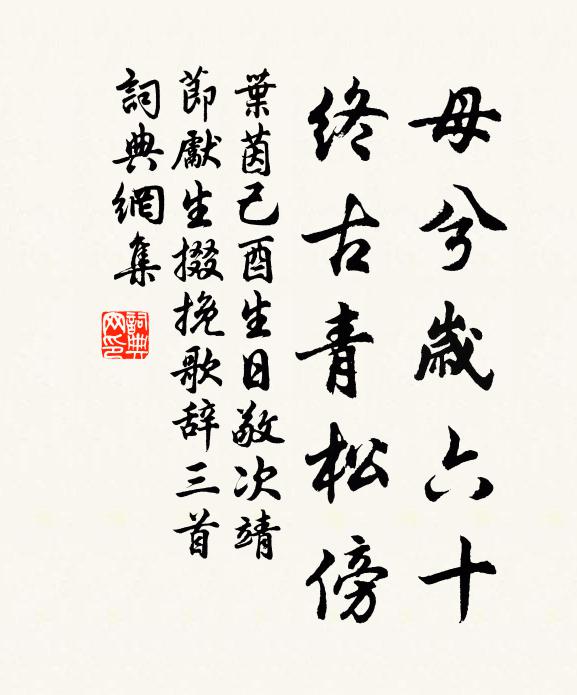 母兮歲六十
終古青松傍
葉茵己酉生日敬次靖
節獻生掇挽歌辞三首
詞典網集
詞典
网印